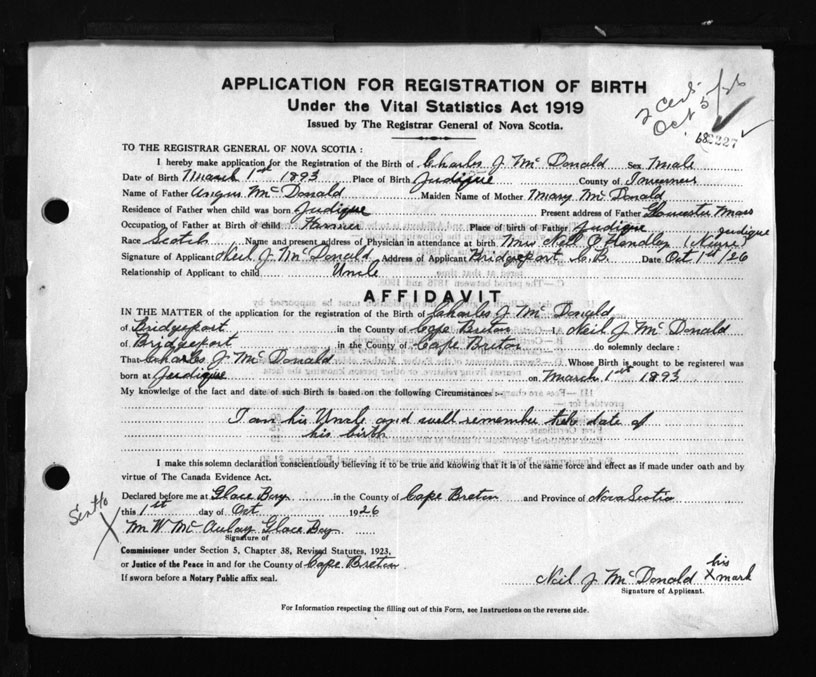 APPLICATION FOR REGISTRATION OF BIRTH
Under the Vital Statistics Act 1919
Issued by The Registrar General of Nova Scotia.
2 Certs
Oct 5/26
68227
TO THE REGISTRAR GENERAL OF NOVA SCOTIA :
I hereby make application for the Registration of the Birth of Charles J. McDonald Sex Male
Date of Birth March 1st 1893 Place of Birth Judique County of Inverness
Name of Father Angus McDonald Maiden Name of Mother Mary McDonald
Residence of Father when child was born Judique Present address of Father Gloucester Mass
Occupation of Father at Birth of child Farmer Place of birth of Father Judique
Race Scotch Name and present address of Physician in attendance at birth Mrs Nell Handley (Nurse) Judique
Signature of Applicant Neil J. McDonald Address of Applicant Bridgeport C.B. Date Oct 1st/26
Relationship of Applicant to child Uncle
AFFIDAVIT
IN THE MATTER of the application for the registration of the Birth of Charles J McDonald
of Bridgeport in the County of Cape Breton I, Neil J McDonald
of Bridgeport in the County of Cape Breton do solemnly declare :
That Charles J McDonald Whose Birth is sought to be registered was
born at Judique on March 1st 1893
My knowledge of the fact and date of such Birth is based on the following Circumstances :-
I am his Uncle and well remember the date of
his birth
I make this solemn declaration conscientiously believing it to be true and knowing that it is of the same force and effect as if made under oath and by
virtue of The Canada Evidence Act.
Declared before me at Glace Bay in the County of Cape Breton and Province of Nova Scotia
this 1st day of Oct 1926
Sent to
X
M. W. McAulay Glace Bay
Signature of
Commissioner under Section 5, Chapter 38, Revised Statutes, 1923,
or Justice of the Peace in and for the County of Cape Breton
If sworn before a Notary Public affix seal.
Neil J McDonald his X mark
Signature of Applicant.
For Information respecting the filling out of this Form, see Instructions on the reverse side.